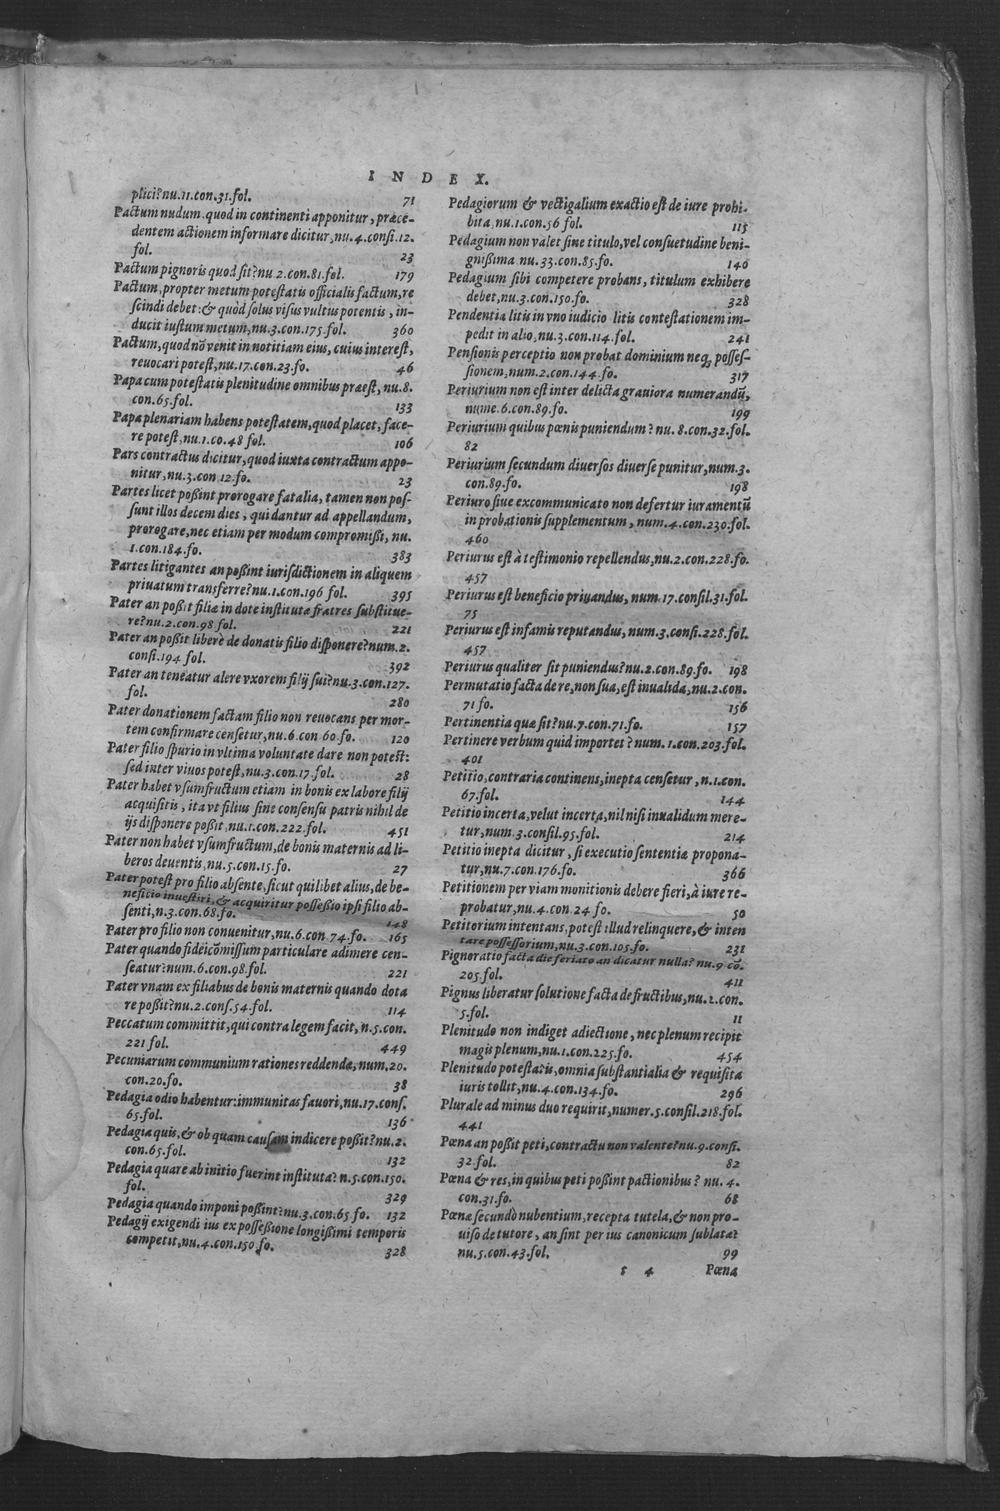 INDEX.
plici? nu. 11. con. 31. fol. 71
Pactum nudum. quod in continenti apponitur, præce-
dentem actionem informare dicitur, nu. 4. consi. 12.
fol. 23
Pactum pignoris quod sit? nu. 2. con. 81. fol. 179
Pactum, propter metum potestatis officialis factum, re
scindi debet: & quòd solus visus vultus potentis, in-
ducit iustum metum, nu. 3. con. 175. fol. 360
Pactum, quod nō venit in notitiam eius, cuius interest,
reuocari potest, nu. 17. con. 23. fo. 46
Papa cum potestatis plenitudine omnibus præest, nu. 8.
con. 65. fol. 133
Papa plenariam habens potestatem, quod placet, face-
re potest, nu. 1. co. 48 fol. 106
Pars contractus dicitur, quod iuxta contractum appo-
nitur, nu. 3. con 12. fo. 23
Partes licet poßint prorogare fatalia, tamen non pos-
sunt illos decem dies, qui dantur ad appellandum,
prorogare, nec etiam per modum compromißi, nu.
1. con. 184. fo. 383
Partes litigantes an poßint iurisdictionem in aliquem
priuatum transferre? nu. 1. con. 196 fol. 395
Pater an poßit filiæ in dote institutæ fratres substitue-
re? nu. 2. con. 98. fol. 221
Pater an poßit liberè de donatis filio disponere? num. 2.
consi. 194 fol. 392
Pater an teneatur alere vxorem filij sui? nu. 3. con. 127.
fol. 280
Pater donationem factam filio non reuocans per mor-
tem confirmare censetur, nu. 6. con 60 fo. 120
Pater filio spurio in vltima voluntate dare non potest:
sed inter viuos potest, nu. 3. con. 17. fol. 28
Pater habet vsumfructum etiam in bonis ex labore filij
acquisitis, ita vt filius sine consensu patris nihil de
ijs disponere poßit, nu. 1. con. 222. fol. 451
Pater non habet vsumfructum, de bonis maternis ad li-
beros deuentis, nu. 5. con. 15. fo. 27
Pater potest pro filio absente, sicut quilibet alius, de be-
neficio inuestiri, & acquiritur possessio ipsi filio ab-
senti, n. 3. con. 68. fo. 148
Pater pro filio non conuenitur, nu. 6. con 74. fo. 165
Pater quando fideicōmissum particulare adimere cen-
seatur? num. 6. con. 98. fol. 221
Pater vnam ex filiabus de bonis maternis quando dota
re poßit? nu. 2. cons. 54. fol. 114
Peccatum committit, qui contra legem facit, n. 5. con.
221 fol. 449
Pecuniarum communium rationes reddendæ, num. 20.
con. 20. fo. 38
Pedagia odio habentur: immunitas fauori, nu. 17. cons.
65. fol. 136
Pedagia quis, & ob quam causam indicere poßit? nu. 2.
con. 65. fol. 132
Pedagia quare ab initio fuerint instituta? n. 5. con. 150.
fol. 329
Pedagia quando imponi poßint? nu. 3. con. 65 fo. 132
Pedagij exigendi ius ex posseßione longißimi temporis
competit, nu. 4. con. 150. fo. 328
Pedagiorum & vectigalium exactio est de iure prohi-
bita, nu. 1. con. 56 fol. 115
Pedagium non valet sine titulo, vel consuetudine beni-
gnißima nu. 33. con. 85. fo. 146
Pedagium sibi competere probans, titulum exhibere
debet, nu. 3. con. 150. fo. 328
Pendentia litis in vno iudicio litis contestationem im-
pedit in alio, nu. 3. con. 114. fol. 241
Pensionis perceptio non probat dominium neq; posses-
sionem, num. 2. con. 144. fo. 317
Periurium non est inter delicta grauiora numerandū,
nume. 6. con. 89. fo. 199
Periurium quibus pœnis puniendum? nu. 8. con. 32. fol.
82
Periurium secundum diuersos diuerse punitur, num. 3.
con. 89. fo. 198
Periuro siue excommunicato non defertur iuramentū
in probationis supplementum, num. 4. con. 230. fol.
460
Periurus est à testimonio repellendus, nu. 2. con. 228. fo.
457
Periurus est beneficio priuandus, num. 17. consil. 31. fol.
75
Periurus est infamis reputandus, num. 3. consi. 228. fol.
457
Periurus qualiter sit puniendus? nu. 2. con. 89. fo. 198
Permutatio facta de re, non sua, est inualida, nu. 2. con.
71 fo. 156
Pertinentia quæ sit? nu. 7. con. 71. fo. 157
Pertinere verbum quid importet? num. 1. con. 203. fol.
401
Petitio, contraria continens, inepta censetur, n. 1. con.
67. fol. 144
Petitio incerta, velut incerta, nil nisi inualidum mere-
tur, num. 3. consil. 95. fol. 214
Petitio inepta dicitur, si executio sententiæ propona-
tur, nu. 7. con. 176. fo. 366
Petitionem per viam monitionis debere fieri, à iure re-
probatur, nu. 4. con. 24 fo. 50
Petitorium intentans, potest illud relinquere, & inten
tare possessorium, nu. 3. con. 105. fo. 231
Pignoratio facta die feriato an dicatur nulla? nu. 9 cō.
205. fol. 411
Pignus liberatur solutione facta de fructibus, nu. 2. con.
5. fol. 11
Plenitudo non indiget adiectione, nec plenum recipit
magis plenum, nu. 1. con. 225. fo. 454
Plenitudo potestatis, omnia substantialia & requisita
iuris tollit, nu. 4. con. 134. fo. 296
Plurale ad minus duo requirit, numer. 5. consil. 218. fol.
441
Pœna an poßit peti, contractu non valente? nu. 9. consi.
32. fol. 82
Pœna & res, in quibus peti poßint pactionibus? nu. 4.
con. 31. fo. 68
Pœnæ secundò nubentium, recepta tutela, & non pro-
uiso de tutore, an sint per ius canonicum sublatæ?
nu. 5. con. 43. fol. 99
s 4 Pœna